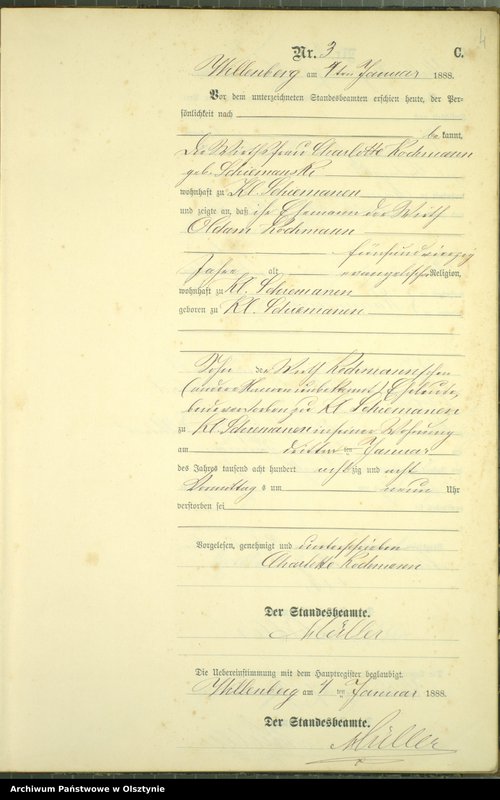 4
Nr. 3 C.
Willenberg am 4ten Januar 1888.
Vor dem unterzeichneten Standesbeamten erschien heute, der Per-
sönlichkeit nach
be kannt,
die Wirthsfrau Charlotte Kochmann
geb. Schiemanski
wohnhaft zu Kl. Schiemanen
und zeigte an, daß ihr Ehemann der Wirth
Adam Kochmann
fünfundvierzig
Jahre alt evangelischer Religion,
wohnhaft zu Kl. Schiemanen
geboren zu Kl. Schiemanen
Sohn der Wirth Kochmann'schen
(andere Namen unbekannt) Eheleute,
beide verstorben zu Kl. Schiemanen
zu Kl. Schiemanen in seiner Wohnung
am dritten ten Januar
des Jahres tausend acht hundert achtzig und acht
Vormittags um neun Uhr
verstorben sei
Vorgelesen, genehmigt und unterschrieben
Charlotte Kochmann
Der Standesbeamte.
Müller
Die Uebereinstimmung mit dem Hauptregister beglaubigt.
Willenberg am 4 ten Januar 1888.
Der Standesbeamte.
Müller
Archiwum Państwowe w Olsztynie